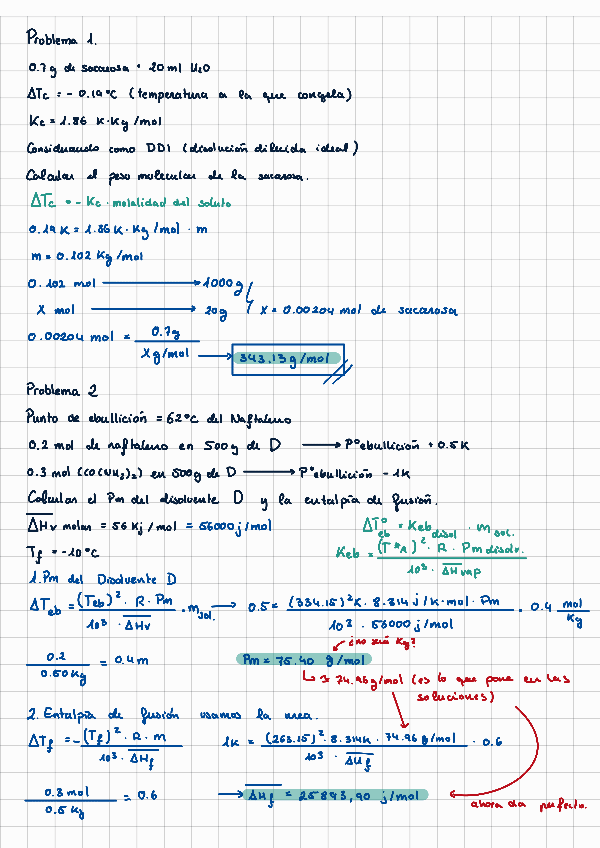 Problema 1.
0.7g de sacarosa + 20ml H₂O
ΔTc = - 0.19°C (temperatura a la que congela)
Kc = 1.86 K·Kg/mol
Considerando como DDI (disolución diluida ideal)
Calcular el peso molecular de la sacarosa.
ΔTc = - Kc · molalidad del soluto
0.19 K = 1.86 K · Kg/mol · m
m = 0.102 Kg/mol
0.102 mol → 1000g
X mol → 20g X = 0.00204 mol de sacarosa
0.00204 mol = 0.7g / X g/mol → 343.13 g/mol
Problema 2
Punto de ebullición = 62°C del Naftaleno
0.2 mol de naftaleno en 500g de D → P°ebullición + 0.5K
0.3 mol (CO(NH₂)₂) en 500g de D → P°ebullición - 1K
Calcular el Pm del disolvente D y la entalpía de fusión.
ΔHv molar = 56 Kj/mol = 56000 j/mol
ΔT°eb = Keb disol · m sol.
Tf = -10°C
Keb = (T*A)² · R · Pm disolv. / 10³ · ΔHvap
1. Pm del Disolvente D
ΔTeb = (Teb)² · R · Pm / 10³ · ΔHv · m sol. → 0.5 = (334.15)²K · 8.314 j/K·mol · Pm / 10³ · 56000 j/mol · 0.4 mol/Kg
¿no será Kg?
0.2 / 0.50 Kg = 0.4m
Pm = 75.40 g/mol
↳ 74.96g/mol (es lo que pone en las
soluciones)
2. Entalpía de fusión usamos la urea.
ΔTf = -(Tf)² · R · m / 10³ · ΔHf 1K = (263.15)² · 8.314K · 74.96 g/mol / 10³ · ΔHf · 0.6
0.3 mol / 0.5 Kg = 0.6 → ΔHf = 25893,90 j/mol
ahora da perfecto.